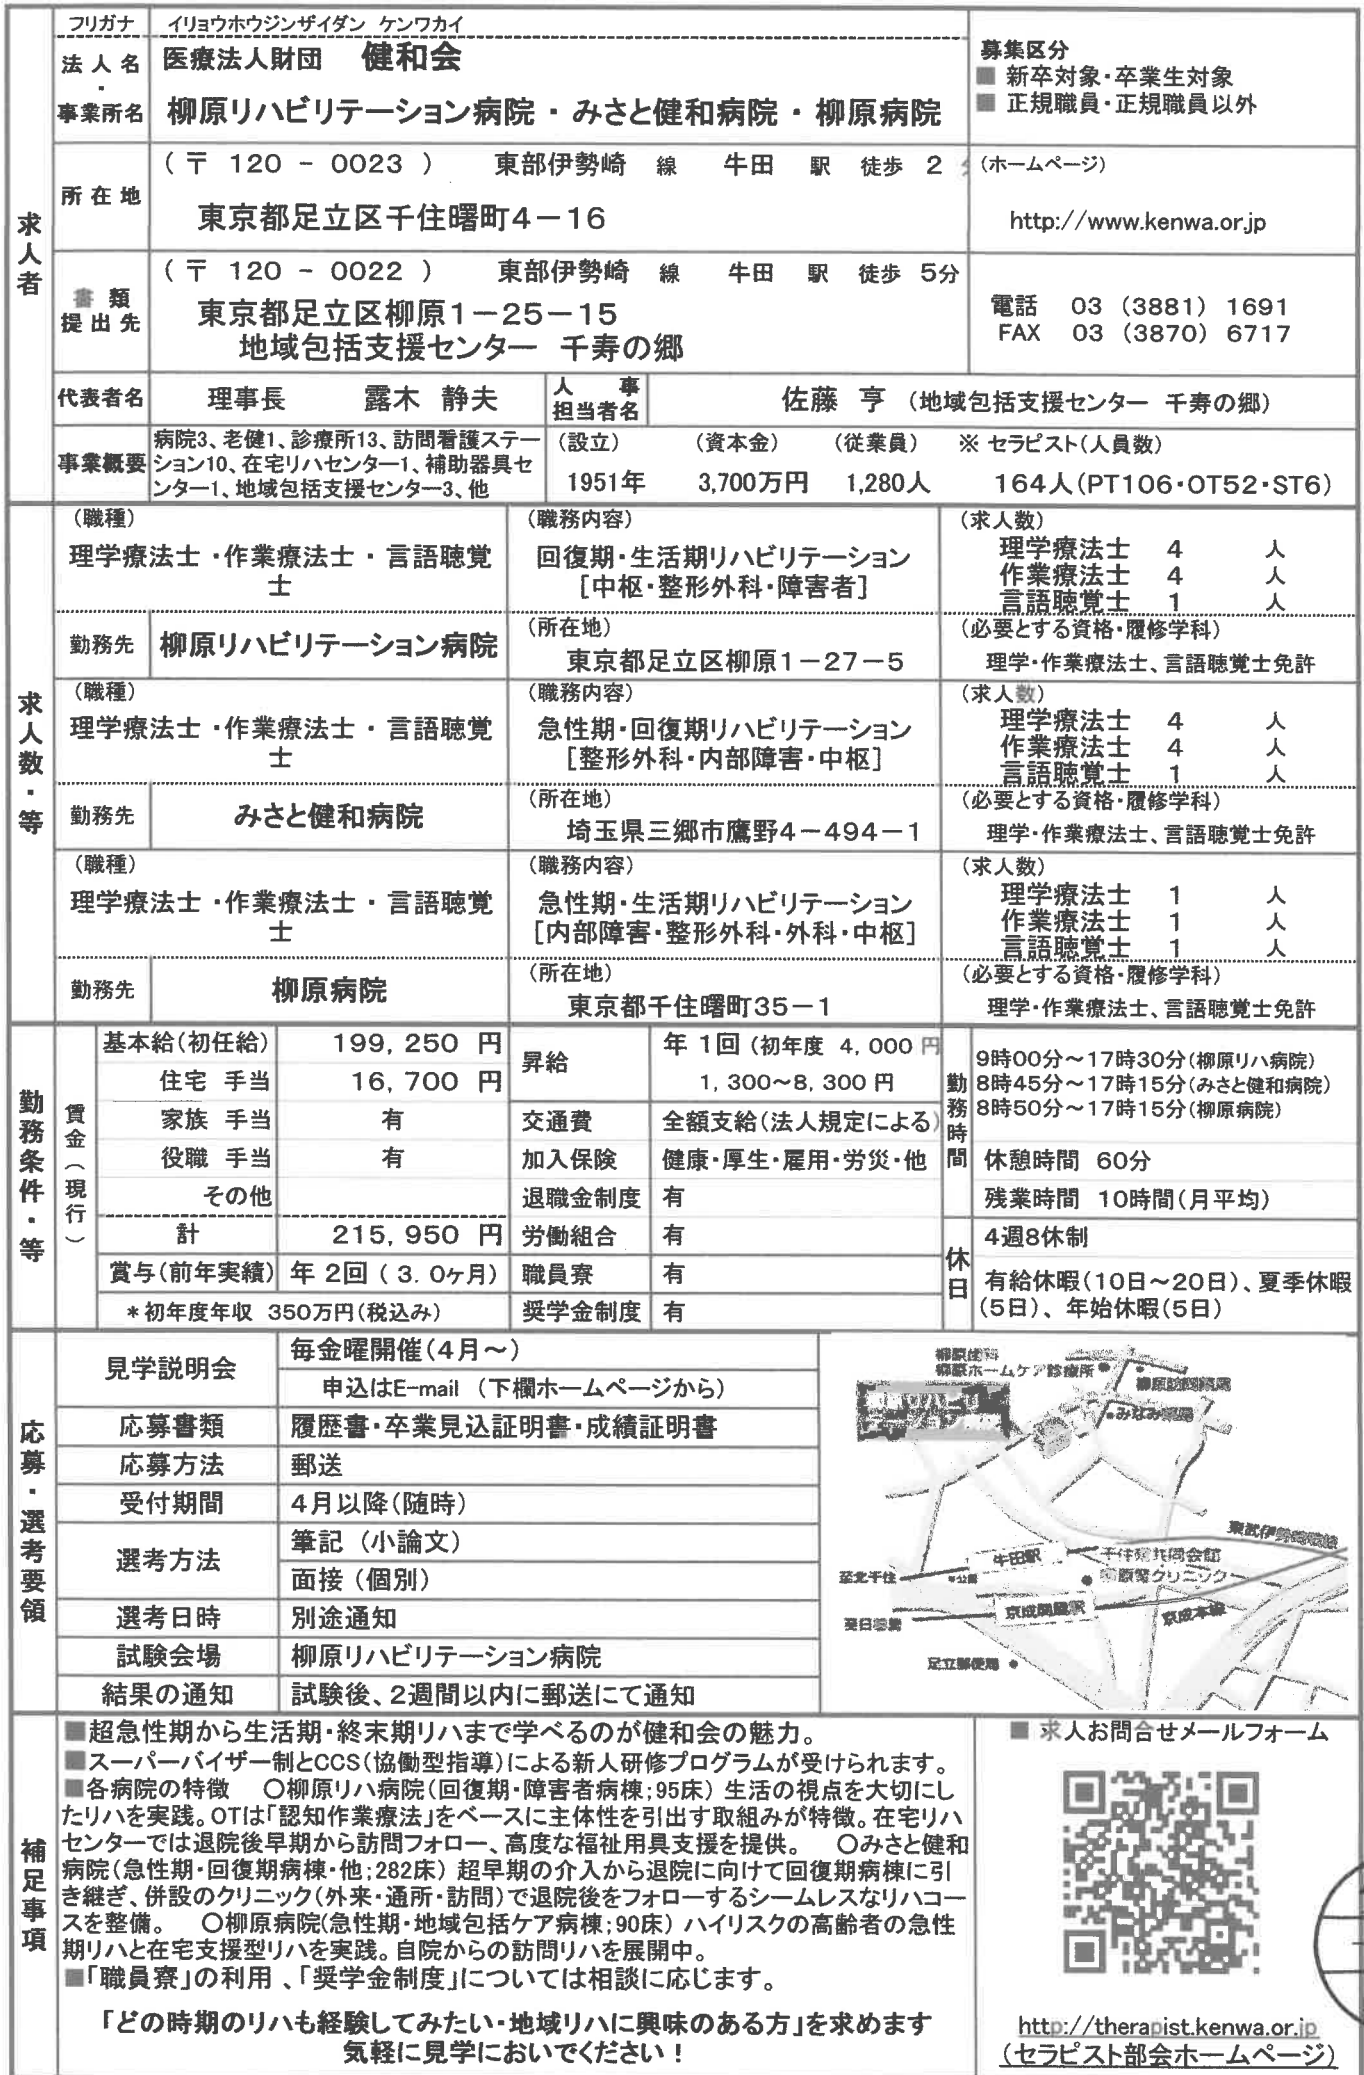 フリガナ イリョウホウジンザイダン ケンワカイ
法人名・事業所名
医療法人財団 健和会
柳原リハビリテーション病院 ・ みさと健和病院 ・ 柳原病院
募集区分
■ 新卒対象・卒業生対象
■ 正規職員・正規職員以外
求人者
所在地
(〒 120 - 0023 ) 東部伊勢崎 線 牛田 駅 徒歩 2
東京都足立区千住曙町4-16
(ホームページ)
http://www.kenwa.or.jp
書類提出先
(〒 120 - 0022 ) 東部伊勢崎 線 牛田 駅 徒歩 5分
東京都足立区柳原1-25-15
地域包括支援センター 千寿の郷
電話 03 (3881) 1691
FAX 03 (3870) 6717
代表者名 理事長 露木 静夫
人事担当者名 佐藤 亨 (地域包括支援センター 千寿の郷)
事業概要
病院3、老健1、診療所13、訪問看護ステー
ション10、在宅リハセンター1、補助器具セ
ンター1、地域包括支援センター3、他
(設立) (資本金) (従業員) ※ セラピスト(人員数)
1951年 3,700万円 1,280人 164人(PT106・OT52・ST6)
求人数・等
(職種)
理学療法士 ・作業療法士 ・ 言語聴覚
士
(職務内容)
回復期・生活期リハビリテーション
[中枢・整形外科・障害者]
(求人数)
理学療法士 4 人
作業療法士 4 人
言語聴覚士 1 人
勤務先 柳原リハビリテーション病院
(所在地)
東京都足立区柳原1-27-5
(必要とする資格・履修学科)
理学・作業療法士、言語聴覚士免許
(職種)
理学療法士 ・作業療法士 ・ 言語聴覚
士
(職務内容)
急性期・回復期リハビリテーション
[整形外科・内部障害・中枢]
(求人数)
理学療法士 4 人
作業療法士 4 人
言語聴覚士 1 人
勤務先 みさと健和病院
(所在地)
埼玉県三郷市鷹野4-494-1
(必要とする資格・履修学科)
理学・作業療法士、言語聴覚士免許
(職種)
理学療法士 ・作業療法士 ・ 言語聴覚
士
(職務内容)
急性期・生活期リハビリテーション
[内部障害・整形外科・外科・中枢]
(求人数)
理学療法士 1 人
作業療法士 1 人
言語聴覚士 1 人
勤務先 柳原病院
(所在地)
東京都千住曙町35-1
(必要とする資格・履修学科)
理学・作業療法士、言語聴覚士免許
勤務条件・等
賃金(現行)
基本給(初任給) 199,250 円
住宅 手当 16,700 円
家族 手当 有
役職 手当 有
その他
計 215,950 円
賞与(前年実績) 年 2回 ( 3.0ヶ月)
*初年度年収 350万円(税込み)
昇給 年 1回 (初年度 4,000 円
1,300~8,300 円
交通費 全額支給(法人規定による)
加入保険 健康・厚生・雇用・労災・他
退職金制度 有
労働組合 有
職員寮 有
奨学金制度 有
勤務時間
9時00分~17時30分(柳原リハ病院)
8時45分~17時15分(みさと健和病院)
8時50分~17時15分(柳原病院)
休憩時間 60分
残業時間 10時間(月平均)
休日
4週8休制
有給休暇(10日~20日)、夏季休暇
(5日)、年始休暇(5日)
応募・選考要領
見学説明会 毎金曜開催(4月~)
申込はE-mail (下欄ホームページから)
応募書類 履歴書・卒業見込証明書・成績証明書
応募方法 郵送
受付期間 4月以降(随時)
選考方法 筆記 (小論文)
面接 (個別)
選考日時 別途通知
試験会場 柳原リハビリテーション病院
結果の通知 試験後、2週間以内に郵送にて通知
柳原歯科
柳原ホームケア診療所
みなみ薬局
東武伊勢崎線
牛田駅
至北千住
京成関屋駅
京成本線
至日暮里
足立郵便局
補足事項
■超急性期から生活期・終末期リハまで学べるのが健和会の魅力。
■スーパーバイザー制とCCS(協働型指導)による新人研修プログラムが受けられます。
■各病院の特徴 ○柳原リハ病院(回復期・障害者病棟;95床) 生活の視点を大切にし
たリハを実践。OTは「認知作業療法」をベースに主体性を引出す取組みが特徴。在宅リハ
センターでは退院後早期から訪問フォロー、高度な福祉用具支援を提供。 ○みさと健和
病院(急性期・回復期病棟・他;282床) 超早期の介入から退院に向けて回復期病棟に引
き継ぎ、併設のクリニック(外来・通所・訪問)で退院後をフォローするシームレスなリハコー
スを整備。 ○柳原病院(急性期・地域包括ケア病棟;90床) ハイリスクの高齢者の急性
期リハと在宅支援型リハを実践。自院からの訪問リハを展開中。
■「職員寮」の利用 、「奨学金制度」については相談に応じます。
「どの時期のリハも経験してみたい・地域リハに興味のある方」を求めます
気軽に見学においでください!
■ 求人お問合せメールフォーム
http://therapist.kenwa.or.jp
(セラピスト部会ホームページ)